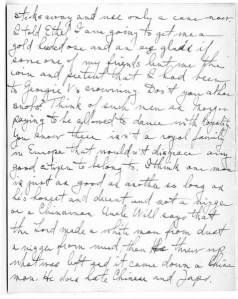 sticks away and use only a cane now.
I told Ethel I am going to get me a
gold one and an eye glass if
some of my friends lent me the
coin and pretend that I had been
to George V's crowning. Don't you abhor
snobs? Think of such men as Morgan
paying to be allowed to dance with royalty.
You know there isn't a royal family
in Europe that wouldn't disgrace any
good citizen to belong to. I think one man
is just as good as another so long as
he's honest and decent and not a nigger
or a Chinaman. Uncle Will says that
the Lord made a white man from dust
a nigger from mud then He threw up
what was left and it came down a China
man. He does hate Chinese and Japs.